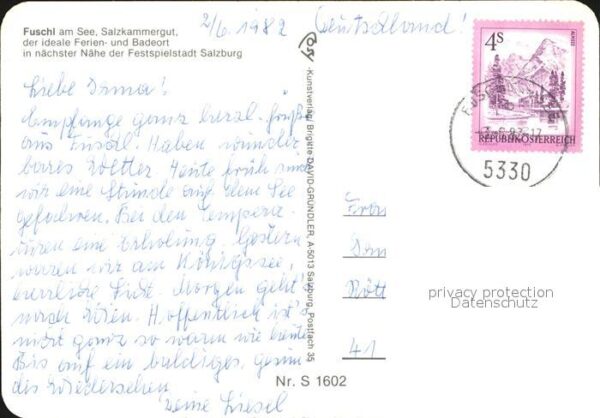 2/6. 1982 Deutschland!
Fuschl am See, Salzkammergut,
der ideale Ferien- und Badeort
in nächster Nähe der Festspielstadt Salzburg
Liebe Irma!
Empfange ganz herzl. Grüße
aus Fuschl. Haben wunder
bares Wetter. Heute früh sind
wir eine Stunde auf dem See
gefahren. Bei den Tempera-
turen eine Erholung. Gestern
waren wir am Königssee,
herrliche Luft. Morgen geht's
nach Wien. Hoffentlich ist's
nicht ganz so warm wie heute.
Bis auf ein baldiges, gesun
des Wiedersehen
Deine Liesel
Kunstverlag Brigitte DAVID-GRÜNDLER, A-5013 Salzburg, Postfach 35
Nr. S 1602
4S
ALMSEE
REPUBLIK ÖSTERREICH
5330
Frau
41
privacy protection
Datenschutz